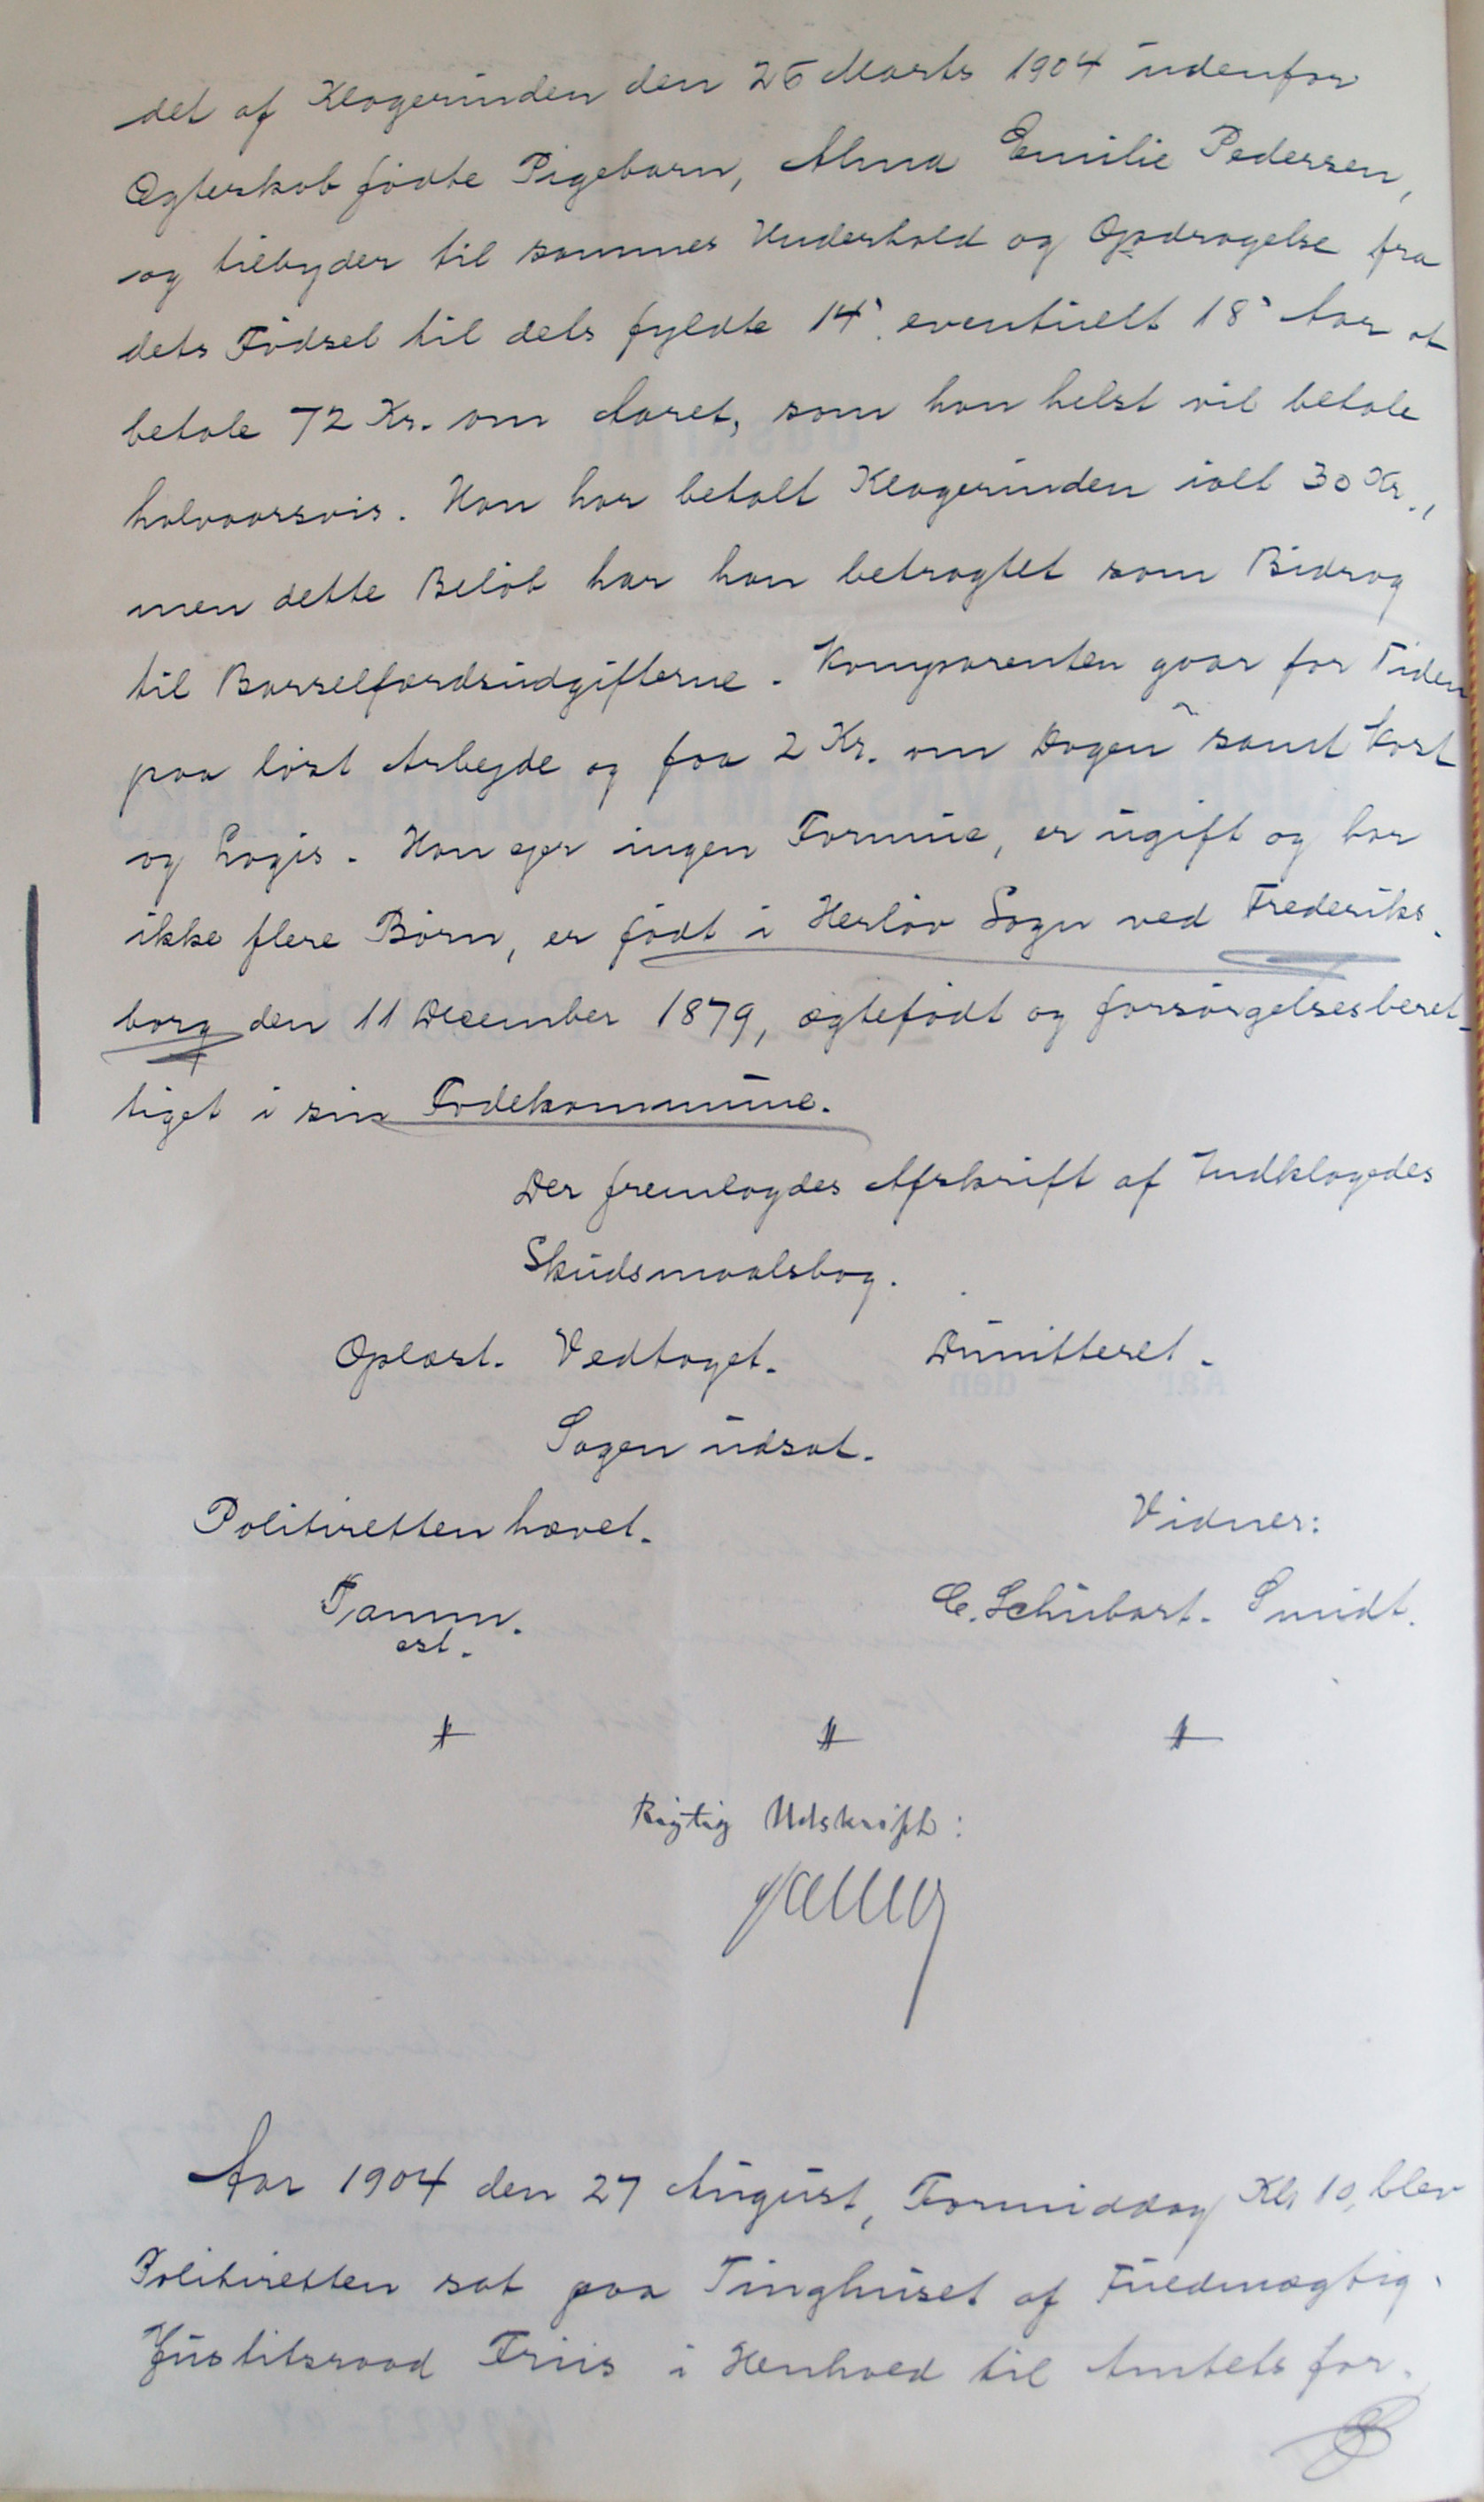 det af Klagerinden den 26 Marts 1904 udenfor
Ægteskab fødte Pigebarn, Alma Emilie Pedersen,
og tilbyder til sammes Underhold og Opdragelse fra
dets Fødsel til dets fyldte 14' eventuelt 18' Aar at
betale 72 Kr. om Aaret, som han helst vil betale
halvaarsvis. Han har betalt Klagerinden ialt 30 Kr.,
men dette Beløb har han betragtet som Bidrag
til Barselfærdsudgifterne. Komparenten gaar for Tiden
paa løst Arbejde og faa 2 Kr. om Dagen samt Kost
og Logis. Han ejer ingen Formue, er ugift og har
ikke flere Børn, er født i Herløv Sogn ved Frederiks-
borg den 11 December 1879, ægtefødt og forsørgelsesberet-
tiget i sin Fødekommune.
Der fremlagdes Afskrift af Indklagedes
Skudsmaalsbog.
Oplæst. Vedtaget. Dimitteret.
Sagen udsat.
Politiretten hævet. Vidner:
Tamm. C. Schubart. Smidt.
cst.
Rigtig Udskrift:
Aar 1904 den 27 August, Formiddag Kl. 10, blev
Politiretten sat paa Tinghuset af Fuldmægtig,
Justitsraad Friis i Henhold til Amtets for-